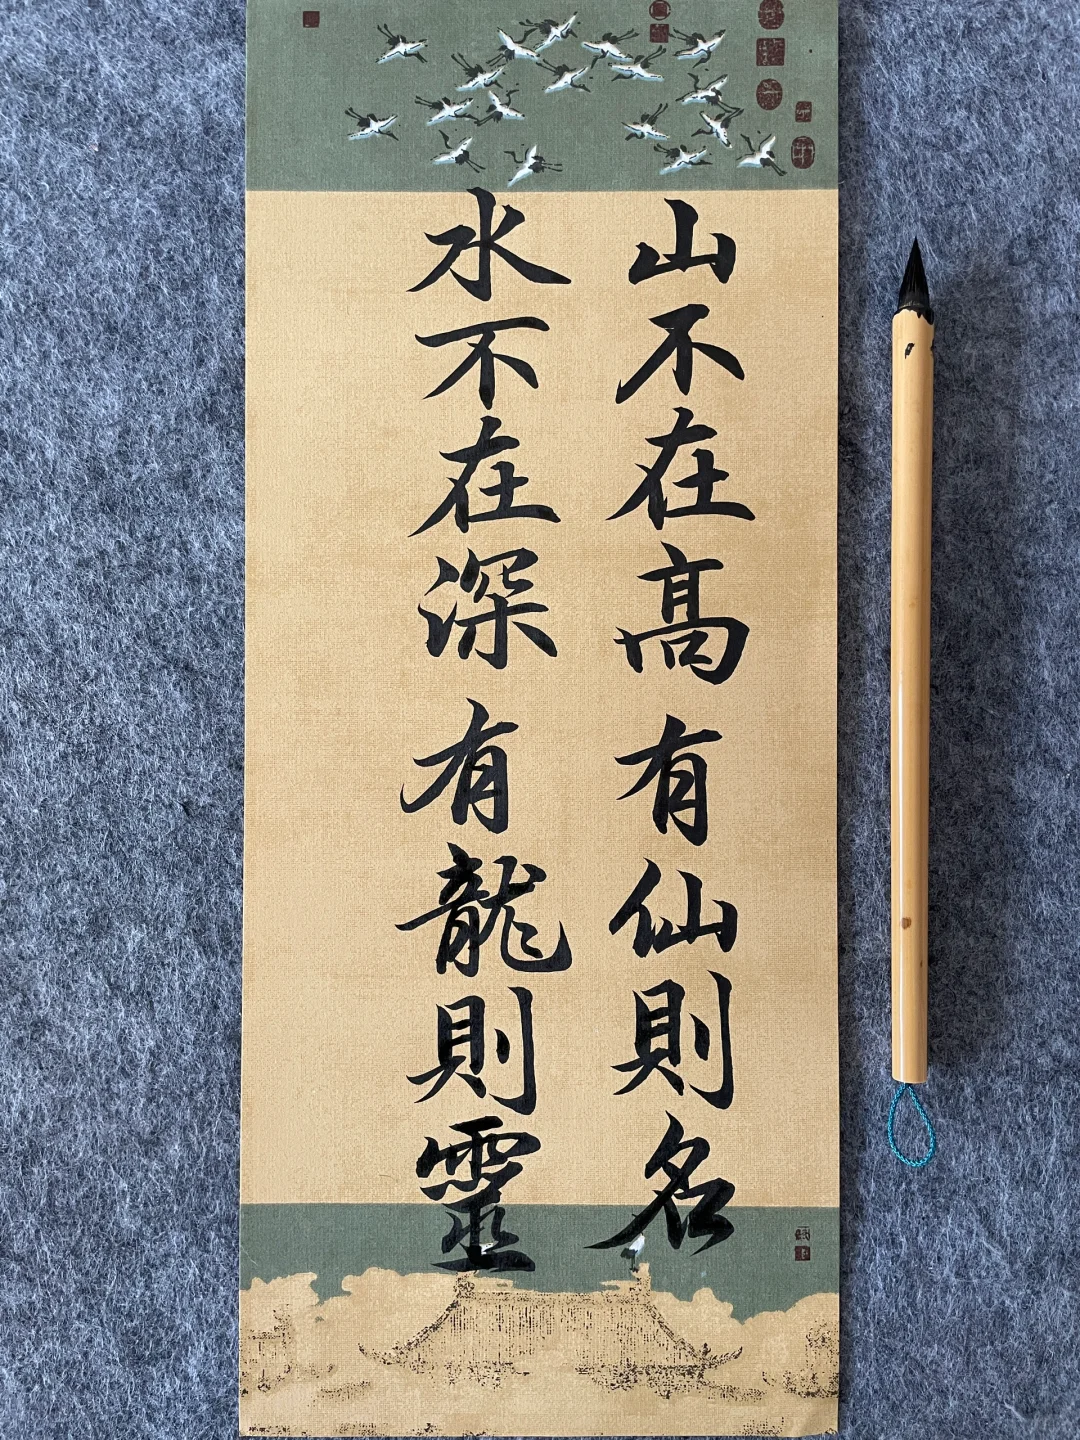 山不在高有仙則名
水不在深有龍則靈